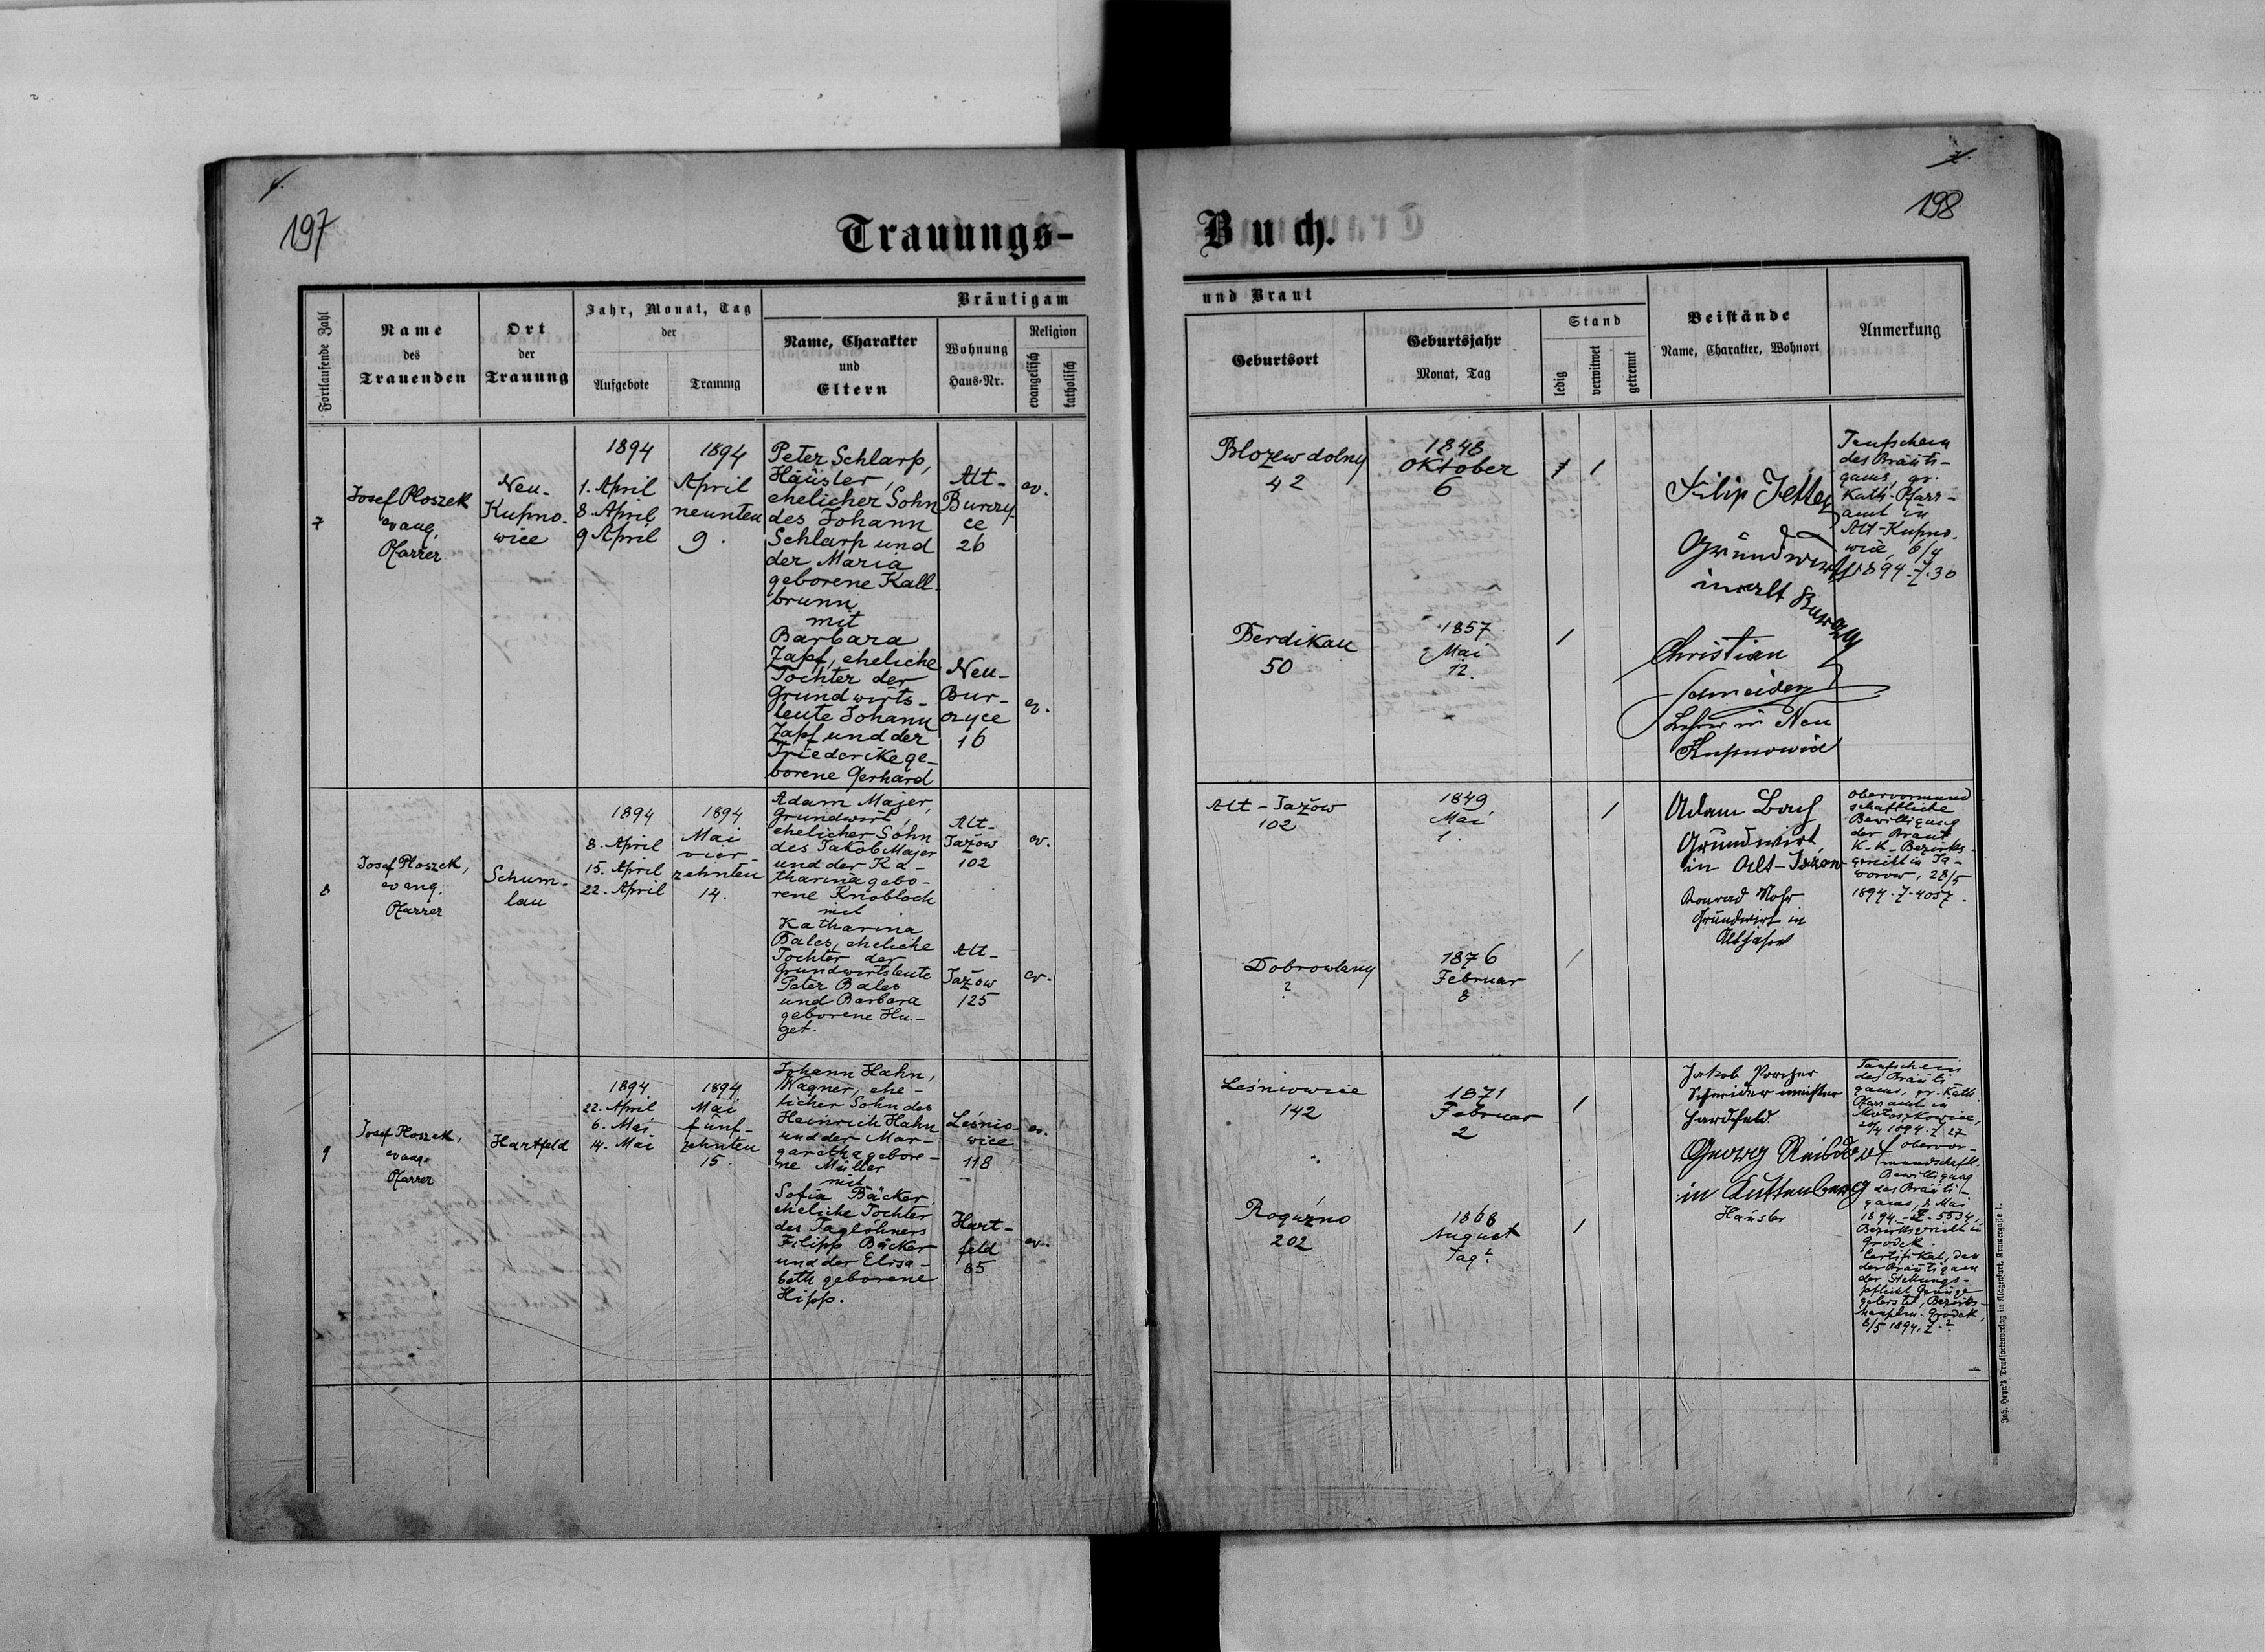 197
198
Trauungs-
Buch.
Fortlaufende Zahl
Name
des
Trauenden
Ort
der
Trauung
Jahr, Monat, Tag
der
Aufgebote
Trauung
Bräutigam
Name, Charakter
und
Eltern
Wohnung
Haus-Nr.
Religion
evangelisch
katholisch
und Braut
Geburtsort
Geburtsjahr
Monat, Tag
Stand
ledig
verwitwet
getrennt
Beistände
Name, Charakter, Wohnort
Anmerkung
7
Josef Ploszek
evang.
Pfarrer
Neu-
Kupno-
wice
1894
1. April
8. April
9 April
1894
April
neunten
9.
Peter Schlarp,
Häusler,
ehelicher Sohn
des Johann
Schlarp und
der Maria
geborene Kall-
brunn
mit
Barbara
Zapf, eheliche
Tochter der
Grundwirts-
leute Johann
Zapf und der
Friederike ge-
borene Gerhard
Alt-
Burczy-
ce
26
ev.
Neu-
Bur-
czyce
16
ev.
Blozew dolny
42
1848
Oktober
6
Berdikau
50
1857
Mai
12.
Filip Jetter
Grundwirt
in Alt Burczy
Christian
Schneider
Lehrer in Neu
Kupnowice
Taufschein
des Bräuti-
gams, gr.
Kath. Pfarr-
amt in
Alt-Kupno-
wice, 6/4
1894. Z. 30
8
Josef Ploszek,
evang.
Pfarrer
Schum-
lau
1894
8. April
15. April
22. April
1894
Mai
vier-
zehnten
14.
Adam Majer,
Grundwirt,
ehelicher Sohn
des Jakob Majer
und der Ka-
tharina gebo-
rene Knobloch
mit
Katharina
Bales, eheliche
Tochter der
Grundwirtsleute
Peter Bales
und Barbara
geborene Hu-
get.
Alt-
Jażow
102
ev.
Alt-
Jażow
125
ev.
Alt-Jażow
102
1849
Mai
1.
Dobrowlany
?
1876
Februar
8.
Adam Bach
Grundwirt
in Alt-Jazow
Konrad Mohr
Grundwirt in
obervormund
schaftliche
Bewilligung
der Braut,
K. K. Bezirks-
gericht in Ja-
worow, 28/5
1894. Z. 4057.
9
Josef Ploszek,
evang.
Pfarrer
Hartfeld
1894
22. April
6. Mai
14. Mai
1894
Mai
fünf-
zehnten
15.
Johann Hahn,
Wagner, ehe-
licher Sohn des
Heinrich Hahn
und der Mar-
garetha gebore-
ne Müller
mit
Sofia Bäcker
eheliche Tochter
des Taglöhners
Filipp Bäcker
und der Elisa-
beth geborene
Hipp.
Leśnio-
wice
118
ev.
Hart-
feld
85
ev.
Leśniowice
142
1871
Februar
2
Roguźno
202
1868
August
Tag?
Jakob
Schneidermeister
Hardfeld.
Georg
in Kuttenberg
Häusler
Taufschein
des Bräuti
gams, gr. Kath.
Pfarramt in
Małoszkowice,
20/4 1894. Z. 27
obervor-
mundschaftl.
Bewilligung
des Bräuti-
gams, 8 Mai
1894. Z. 5534,
Bezirksgericht in
Grodek.
Certifikat, den
der Bräutigam
der Stellungs-
pflicht Genüge
geleistet, Bezirks-
hauptm. Grodek,
8/5 1894, Z. ?
Joh. Heyn's Drucksortenverlag in Klagenfurt, Kramergasse 1.